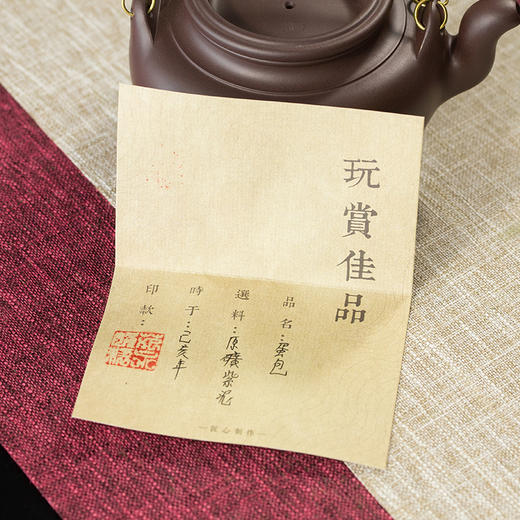 玩賞佳品
品名：蛋包
選料：原礦紫泥
時于：己亥年
印款：
一匠心制作一